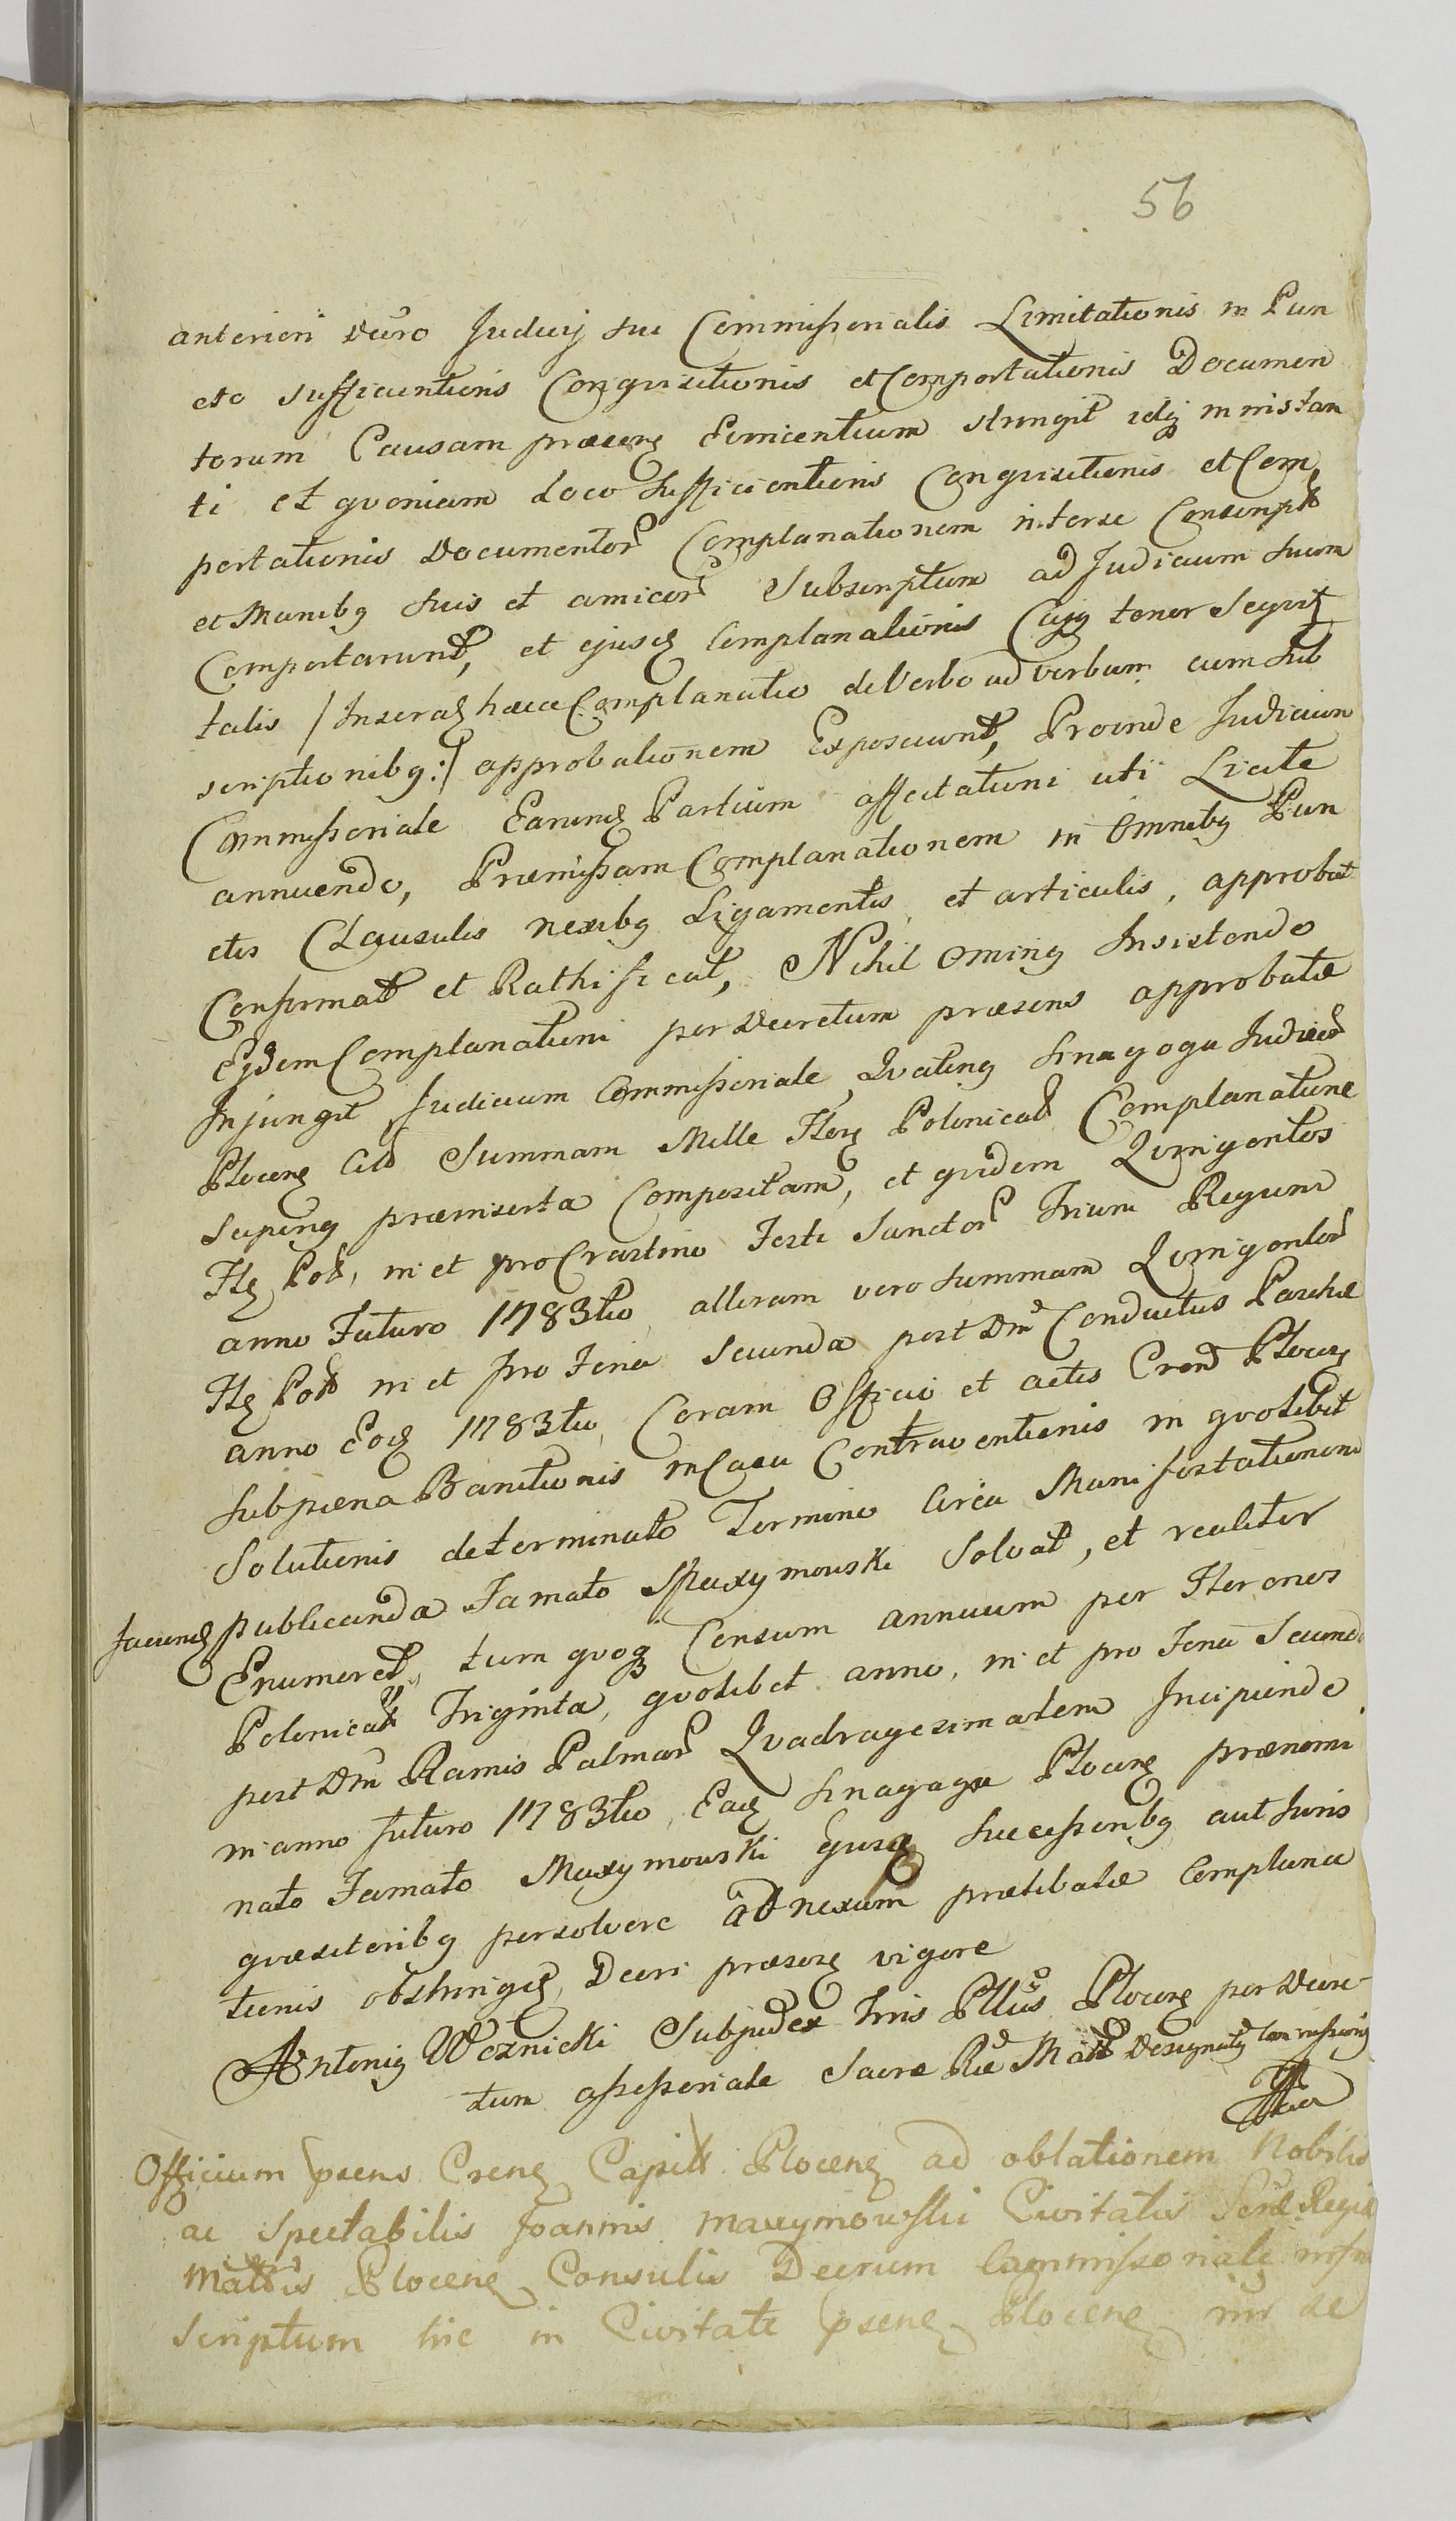 56
anteriori vero Judicij sui Commissorialis Limitationis in Pun
cto sufficientioris Conqvisitionis et Comportationis Documen
torum Causam præcens Evincentium idq
ti et qvoniam Loco Sufficientioris Conqvisitionis et Com
portationis Documentor Complanationem inter se Conscript
et Manibq Suis et amicor Subscriptum ad Judicium Suum
Comportarunt, et ejusd Complanationis Cujq tenor Seqvit
talis / Inserat hæc Complanatio de Verbo ad verbum cum Sub
scriptionibq:/ approbationem Exposcunt, Proinde Judicium
Commissoriale Earund Partium affectationi uti Licite
annuendo, Præmissam Complanationem in Omnibq Pun
ctis Clausulis nexibq Ligamentis et articulis, approbat
Confirmat et Rathificat, Nihil Ominq Insistendo
Ejdem Complanationi per Decretum præsens approbatæ
Injungit Judicium Commissoriale Qvatinq Sinagoga Judæor
Plocens Summam Mille Flor Polonical Complanatione
Superiq præinserta Compositam, et qvidem Qvingentos
Fl Pol, in et pro Crastino Festi Sanctor Trium Regum
anno Futuro 1783tio, alteram vero Summam Qvingentor
Fl Pol in et pro Feria Secunda post Dm Conductus Paschæ
anno Eod 1783tio, Coram Officio et actis Crend Plocen
Sub pæna Banitionis in Casu Contraventionis in qvolibet
Solutionis determinato Termino Circa Manifestationem
faciend publicanda Famato Maxymowski Solvat, et realiter
Enumeret, tum qvoq Censum annuum per Florenos
Polonical Triginta, qvolibet anno, in et pro Feria Secunda
post Dm Ramis Palmar Qvadragesimalem Incipiendo
in anno futuro 1783tio, Ead Sinagaga Plocens prænomi
nato Famato Maxymowski Ejusq Successoribq aut Juris
qvæsitoribq persolvere ad nexum prælibatæ Complana
tionis obstringit, Decri præsens vigore
Antoniq Woznicki Subjudex Tris Pltus Plocens per Decre-
tum assessoriale Sacræ Ræ Matt Designatq Commissariq
Officium psens Crens Capitt Plocens ad oblationem Nobilis
ac Spectabilis Joannis Maxymowski Civitatis Regiæ
Mattis Plocens Consulis Decrum Commissoriale infra
Scriptum hic in Civitate psens Plocens